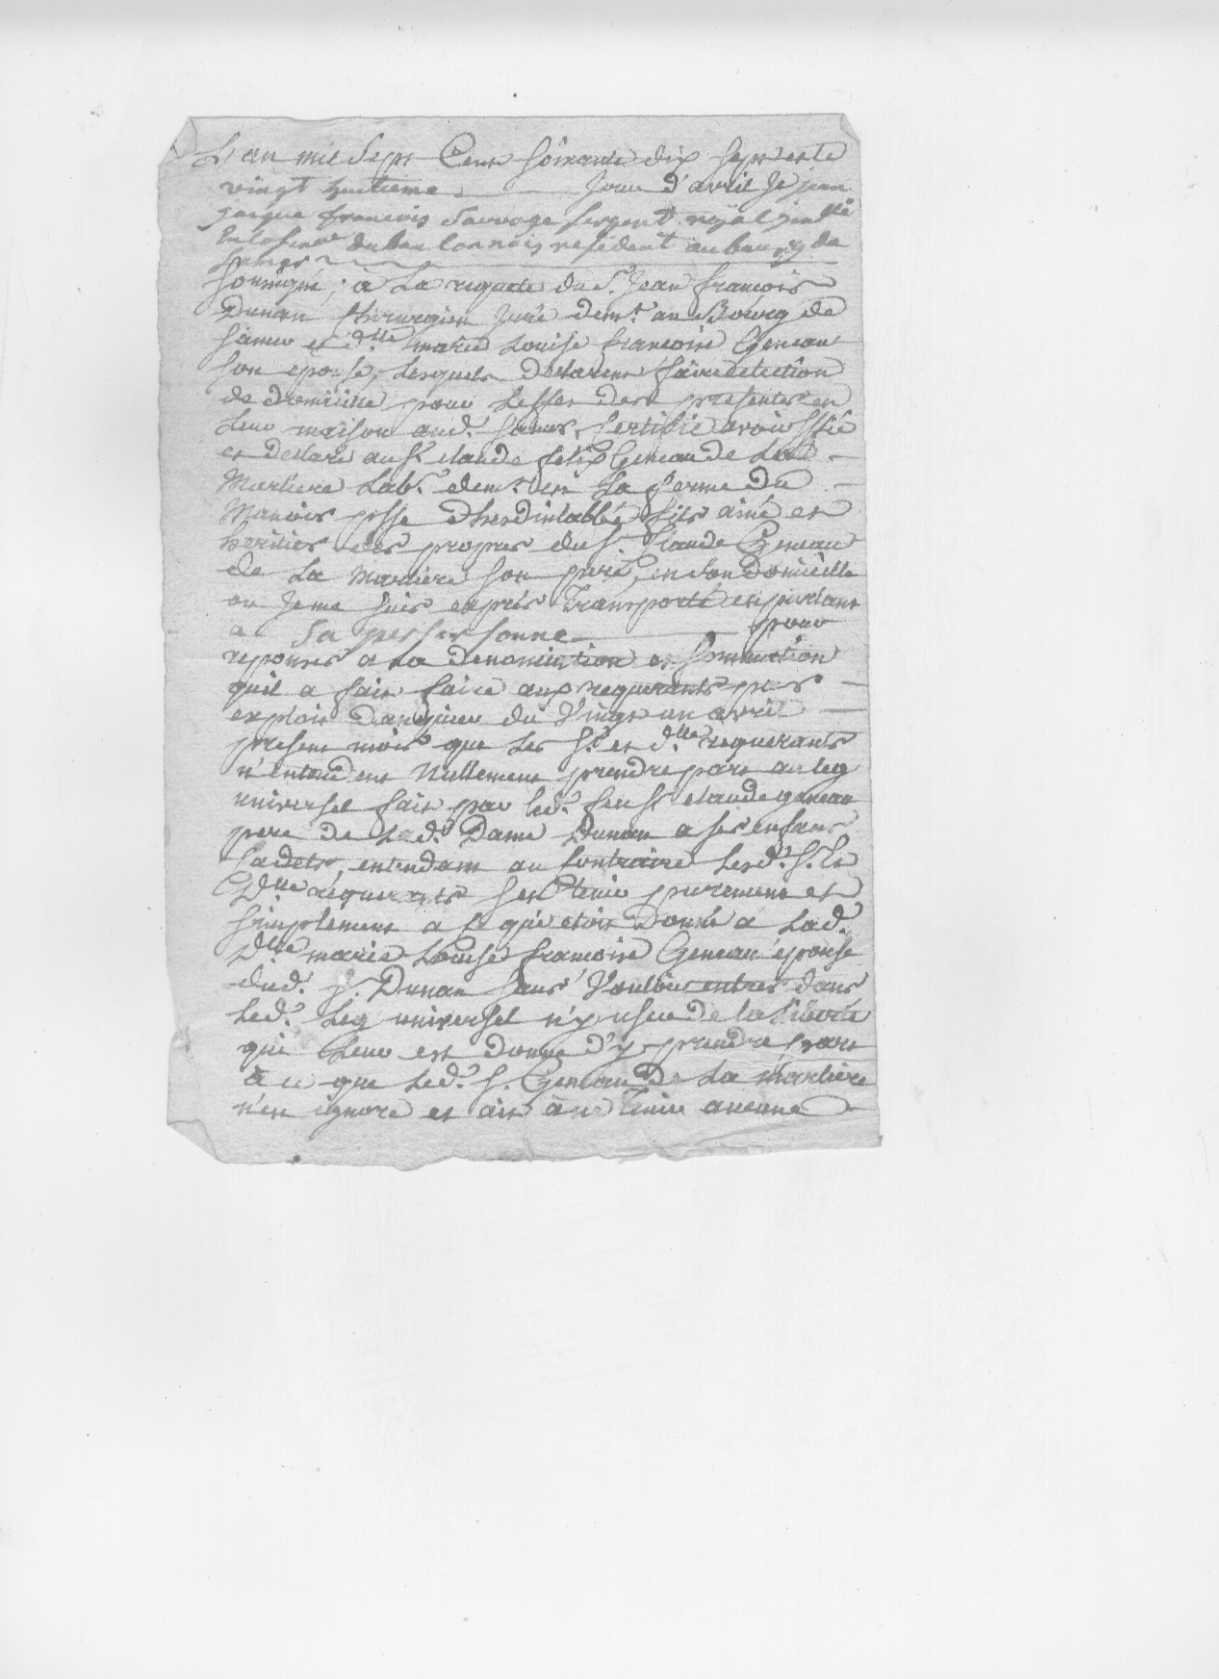 L'an mil Sept Cent soixante dix sept et le
vingt huitieme jour d'avril Je jean
jacque francois Sauvage sergent royal
du boulonnois residant au bourg de
Samer
soussigné, à La requete du S.r Jean francois
Dunan Chirurgien Juré dem.t au Bourg de
Samer et d.lle marie Louise francoise Geneau
son epouse, lesquels declarent faire election
de domicille pour Leffet des presentes en
Leur maison aud.t Samer, Certifie avoir
et declaré au S.r claude felix Geneau de La
Marliere Lab.r dem.t en La ferme du
Manoir psse d'hesdinlabbé fils ainé et
heritier des propres du S.r Claude Geneau
de La Marliere son pere, en son Domicille
ou Je me suis exprès Transporté en parlant
a Sa per personne pour
reponses a La denonciation et sommation
quil a fait faire aux requerants par
exploit du Vingt un avril
present mois que Les S.r et d.lle requerants
n'entendent Nullement prendre part au leg
universel fait par led.t feu S.r claude geneau
pere de Lad.t Dame Dunan a ses enfans
Cadets, entendant au Contraire Lesd.t S.r Et
D.lle requerants s'en tenir purement et
simplement a ce qui etoit Donné a Lad.t
D.lle marie Louise francoise Geneau epouse
dud.t S.r Dunan sans Vouloir entrer dans
Led.t Leg universel n'y user de la liberté
qui Leur est donné d'y prendre part
à ce que Led.t S.r Geneau De La marliere
n'en ignore et ait à ne Tenir aucune